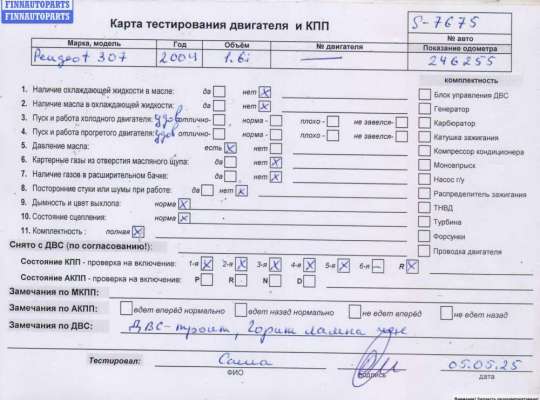 FINNAUTOPARTS
FINNAUTOPARTS
Карта тестирования двигателя и КПП
S-7675
№ авто
Марка, модель Год Объём № двигателя Показание одометра
Peugeot 307 2004 1.6i — 246255
комплектность
1. Наличие охлаждающей жидкости в масле: да нет X
2. Наличие масла в охлаждающей жидкости: да нет X
3. Пуск и работа холодного двигателя: удов отлично- норма - плохо - не завелся-
4. Пуск и работа прогретого двигателя: удов отлично- норма - плохо - не завелся-
5. Давление масла: есть X нет
6. Картерные газы из отверстия масляного щупа: да нет X
7. Наличие газов в расширительном бачке: да нет X
8. Посторонние стуки или шумы при работе: да нет X
9. Дымность и цвет выхлопа: норма X
10. Состояние сцепления: норма X
11. Комплектность : полная X
Блок управления ДВС
Генератор
Карбюратор
Катушка зажигания
Компрессор кондиционера
Моновпрыск
Насос г/у
Распределитель зажигания
ТНВД
Турбина
Форсунки
Проводка двигателя
Снято с ДВС (по согласованию!):
Состояние КПП - проверка на включение: 1-я X 2-я X 3-я X 4-я X 5-я X 6-я — R X
Состояние АКПП - проверка на включение: P R N D
Замечания по МКПП:
Замечания по АКПП: едет вперёд нормально едет назад нормально не едет вперёд не едет назад
Замечания по ДВС: ДВС-троит, Горит лампа
Тестировал: Саша 05.05.25
ФИО подпись дата